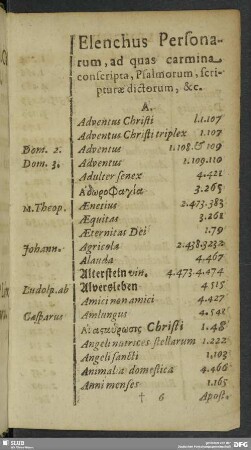 Elenchus Persona-
rum, ad quas carmina
conscripta, Psalmorum, scri-
pturæ dictorum, &c.
A.
Adventus Christi 1.1.107
Adventus Christi triplex 1.107
Dom. 2. Adventus 1.108. & 109
Dom. 3. Adventus 1.109.110
Adulter senex 4.421
ΑδωροΦαγία 3.265
M. Theop.Ænetius 2.473.383
Æquitas 3.268
Æternitas Dei 1.79
Johann. Agricola
Alauda 4.467
Alterstein vin. 4.473.4.474
Ludolp. ab Alversleben 4.515
Amici non amici 4.427
Casparus Amlungus 4.548
Christi 1.48
Angeli nutrices stellarum 1.222
Angeli sancti 1.103
Animalia domestica 4.466
Anni menses 1.165
† 6 Apost.
SLUB